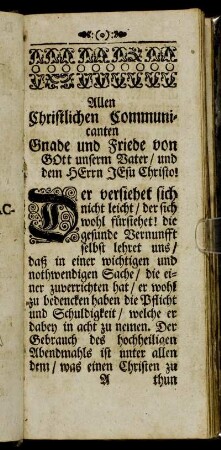 Allen
Christlichen Communi-
canten
Gnade und Friede von
GOtt unserm Vater/ und
dem HErrn JEsu Christo!
Der versiehet sich
nicht leicht/ der sich
wohl fürsiehet! die
gesunde Vernunfft
selbst lehret uns/
daß in einer wichtigen und
nothwendigen Sache/ die ei-
ner zuverrichten hat/ er wohl
zu bedencken haben die Pflicht
und Schuldigkeit/ welche er
dabey in acht zu nemen. Der
Gebrauch des hochheiligen
Abendmahls ist unter allen
dem/ was einen Christen zu
A thun
AC-